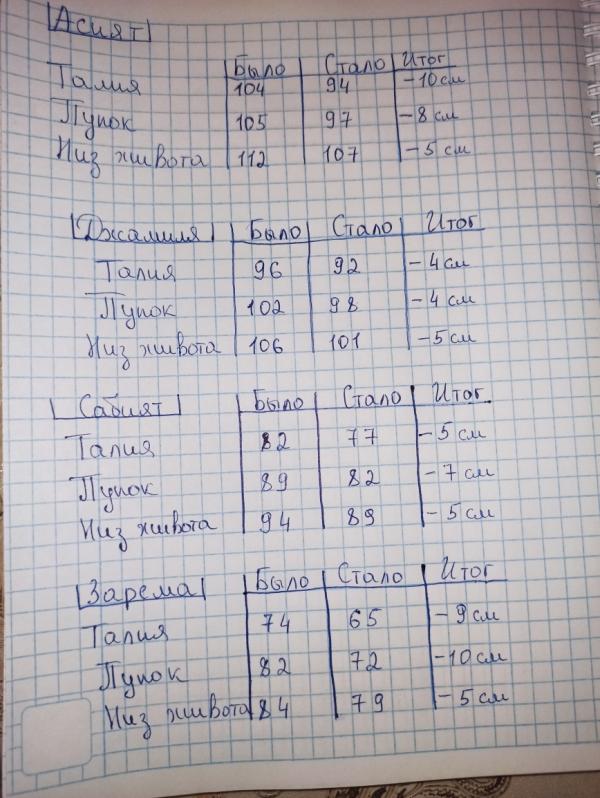 Асият
Было Стало Итог
Талия 104 94 -10 см
Пупок 105 97 -8 см
Низ живота 112 107 -5 см
Джамиля Было Стало Итог
Талия 96 92 -4 см
Пупок 102 98 -4 см
Низ живота 106 101 -5 см
Сабият Было Стало Итог
Талия 82 77 -5 см
Пупок 89 82 -7 см
Низ живота 94 89 -5 см
Зарема Было Стало Итог
Талия 74 65 -9 см
Пупок 82 72 -10 см
Низ живота 84 79 -5 см